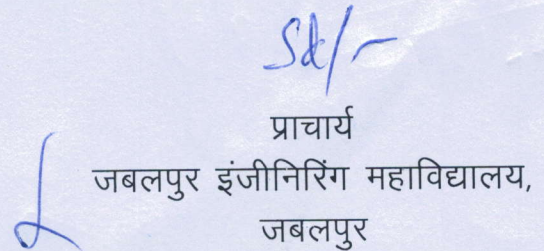 Sd/-
प्राचार्य
जबलपुर इंजीनिरिंग महाविद्यालय,
जबलपुर